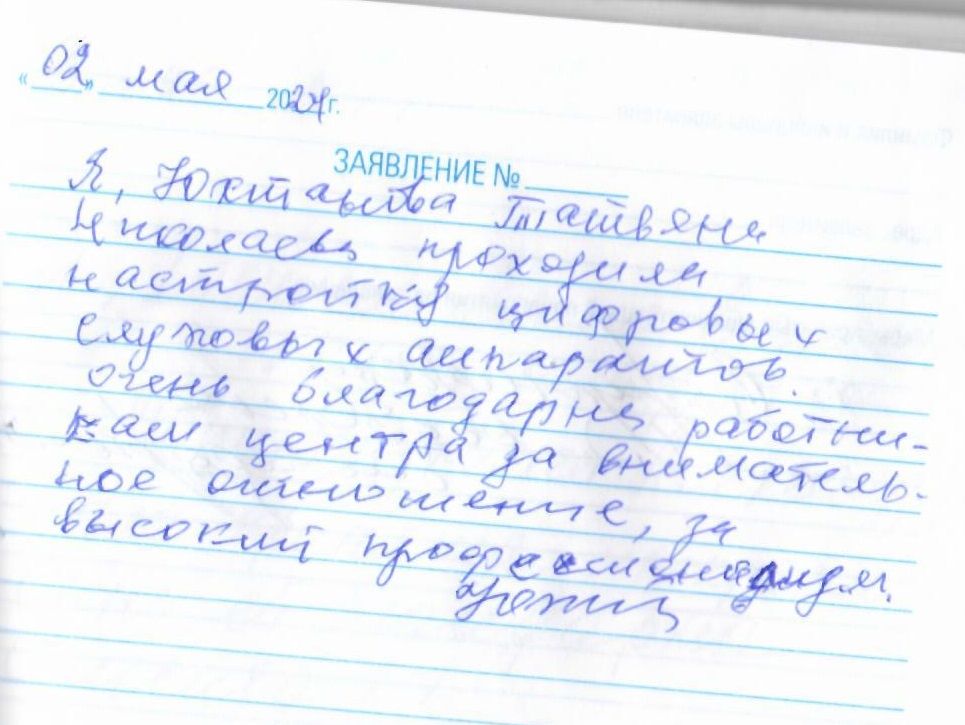 «02» мая 2024 г.
ЗАЯВЛЕНИЕ №
Я, Татьяна
Николаевна проходила
настройку цифровых
слуховых аппаратов.
очень благодарна работни-
кам центра за вниматель-
ное отношение, за
высокий профессионализм.